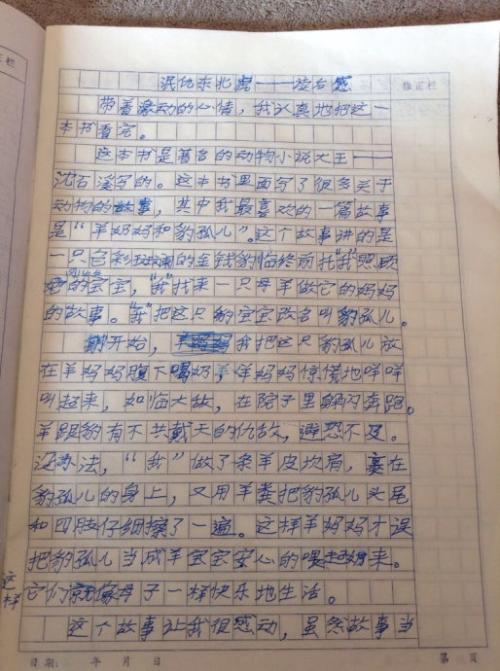 混血东北虎——读后感
带着激动的心情，我认真地把这一
本书看完。
这本书是著名的动物小说大王——
沈石溪写的。这本书里面写了很多关于
动物的故事，其中我最喜欢的一篇故事
是“羊妈妈和豹孤儿”。这个故事讲的是
一只色彩斑斓的金钱豹临终前托“我”照顾
的宝宝，“我”找来一只母羊做它的妈妈
的故事。“我”把这只豹宝宝改名叫豹孤儿。
刚开始，我把这只豹孤儿放
在羊妈妈腹下喝奶，羊妈妈惊慌地咩咩
叫起来，如临大敌，在院子里躲闪奔跑。
羊跟豹有不共戴天的仇敌，避恐不及。
没办法，“我”做了条羊皮坎肩，裹在
豹孤儿的身上，又用羊粪把豹孤儿头尾
和四肢仔细擦了一遍。这样羊妈妈才误
把豹孤儿当成羊宝宝安心的喂起奶来。
这样
它们就像母子一样快乐地生活。
这个故事让我很感动，虽然故事当
修正栏
正栏
日期： 年 月 日
第 页